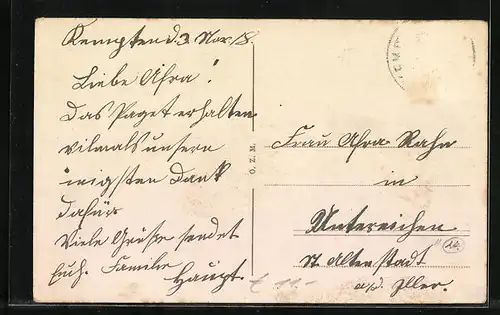 Kempten d. 3. Nov. 18.
Liebe Afra!
Das Paget erhalten
vilmals unsern
inigsten Dank
dafür
Viele Grüße sendet
Euch. Familie
Haupt.
O. Z. M.
Frau Afra Rahn
in
Untereichen
St. Altenstadt
a/d. Iller.
€ 11.-